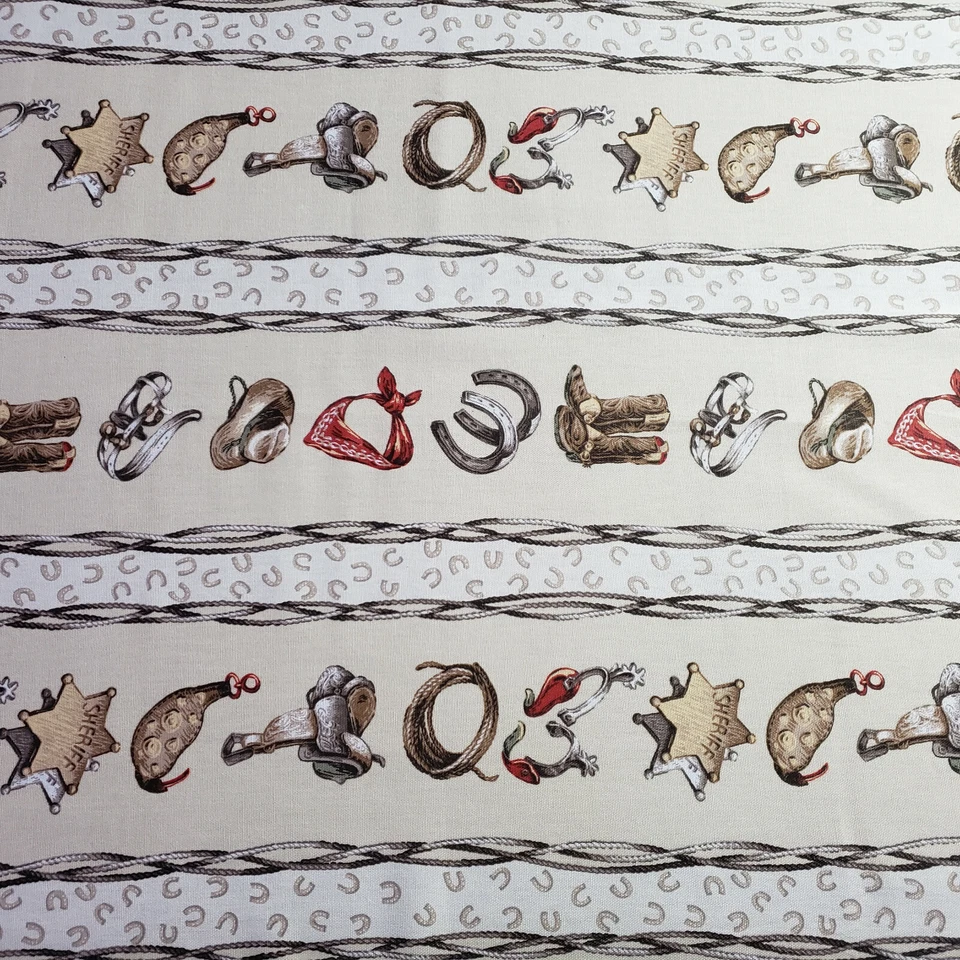 SHERIFF
SHERIFF
SHERIFF
SHERIFF